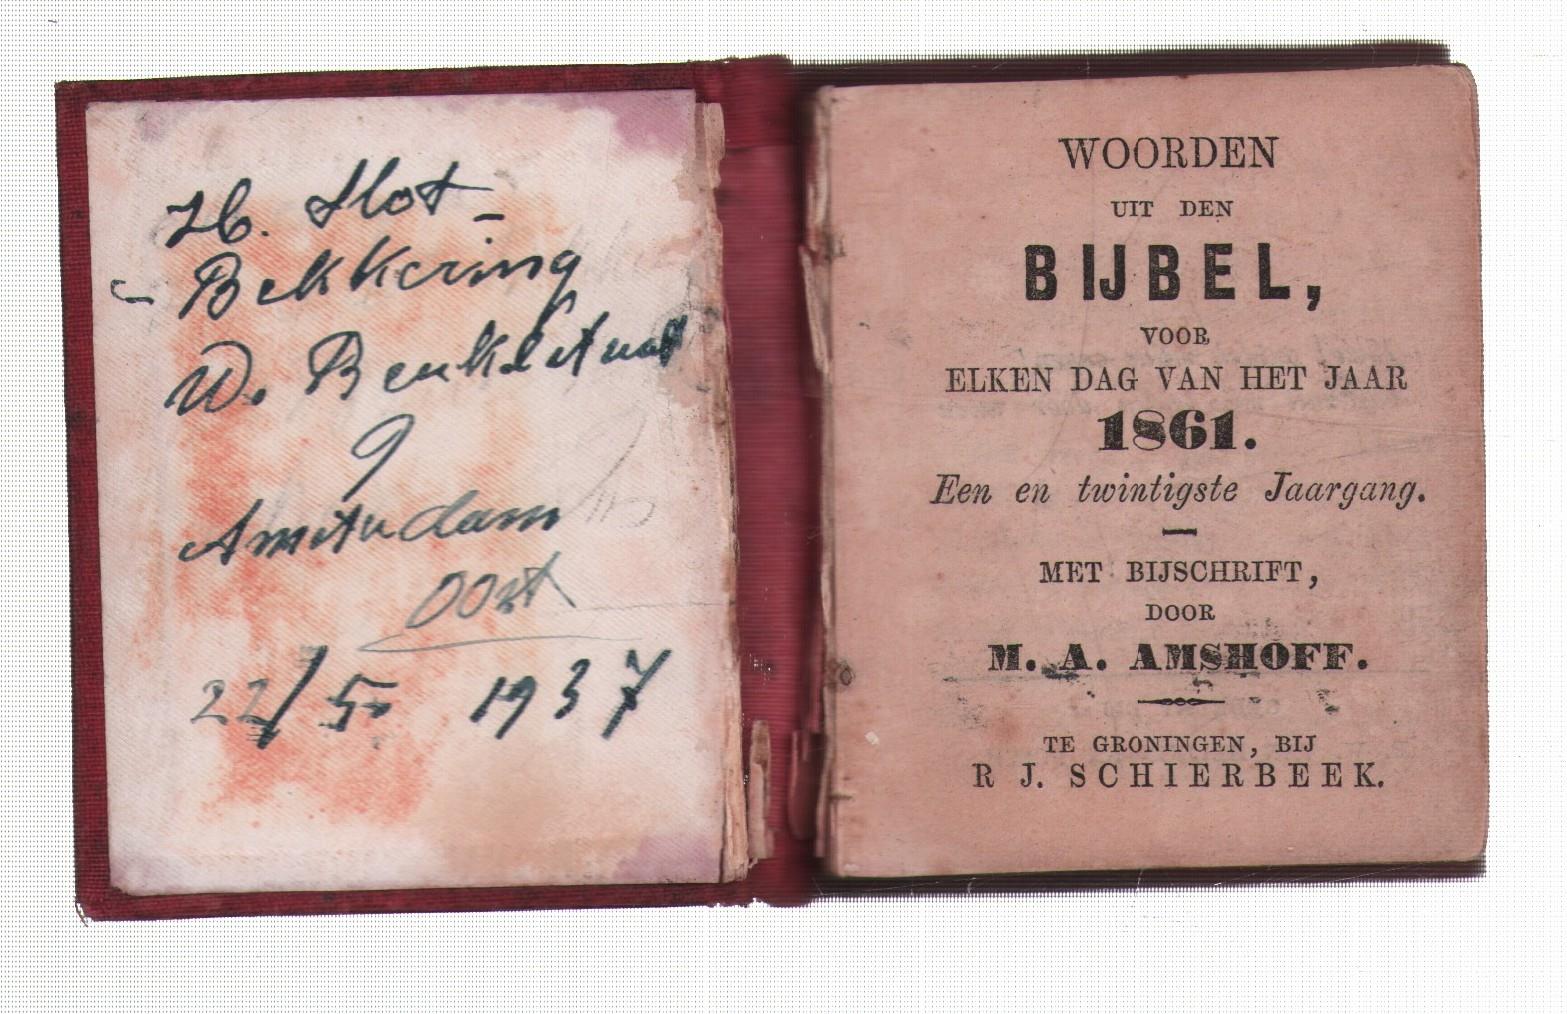 H. Slot-
Bekkering
W. Beukelstraat
9
Amsterdam
Oost
22/5 1937
WOORDEN
UIT DEN
BIJBEL,
VOOR
ELKEN DAG VAN HET JAAR
1861.
Een en twintigste Jaargang.
MET BIJSCHRIFT,
DOOR
M. A. AMSHOFF.
TE GRONINGEN, BIJ
R J. SCHIERBEEK.